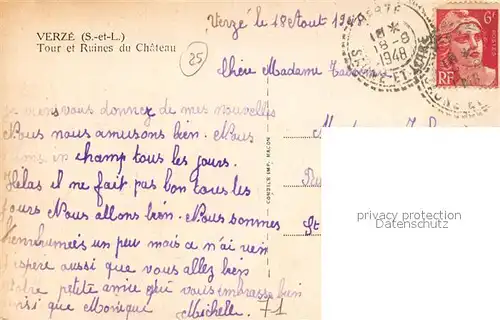 VERZÉ (S.-et-L.)
Tour et Ruines du Château
25
Verzé le 18 Aout 19
Chère Madame
VERZÉ
18 *
18-8
1948
SAÔNE-ET-LOIRE
6F
RF
Je viens vous donnez de mes nouvelles
Nous nous amusons bien. Nous
en champ tous les jours.
Hélas il ne fait pas bon tous les
jours Nous allons bien. Nous sommes
un peu mais ce n'ai rien
J'espère aussi que vous allez bien
Votre petite amie qui vous embrasse bien
ainsi que Monique Michelle
71
St
COMBIER IMP. MACON
privacy protection
Datenschutz